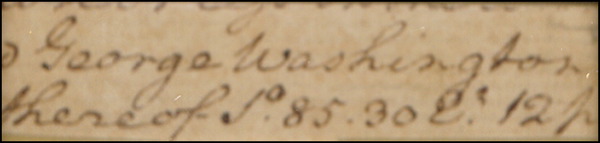 George Washington
thereof S°. 85.30 E^s. 12 p